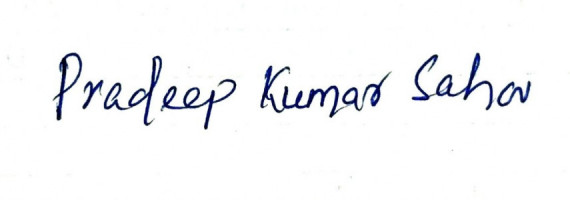 Pradeep Kumar Sahoo